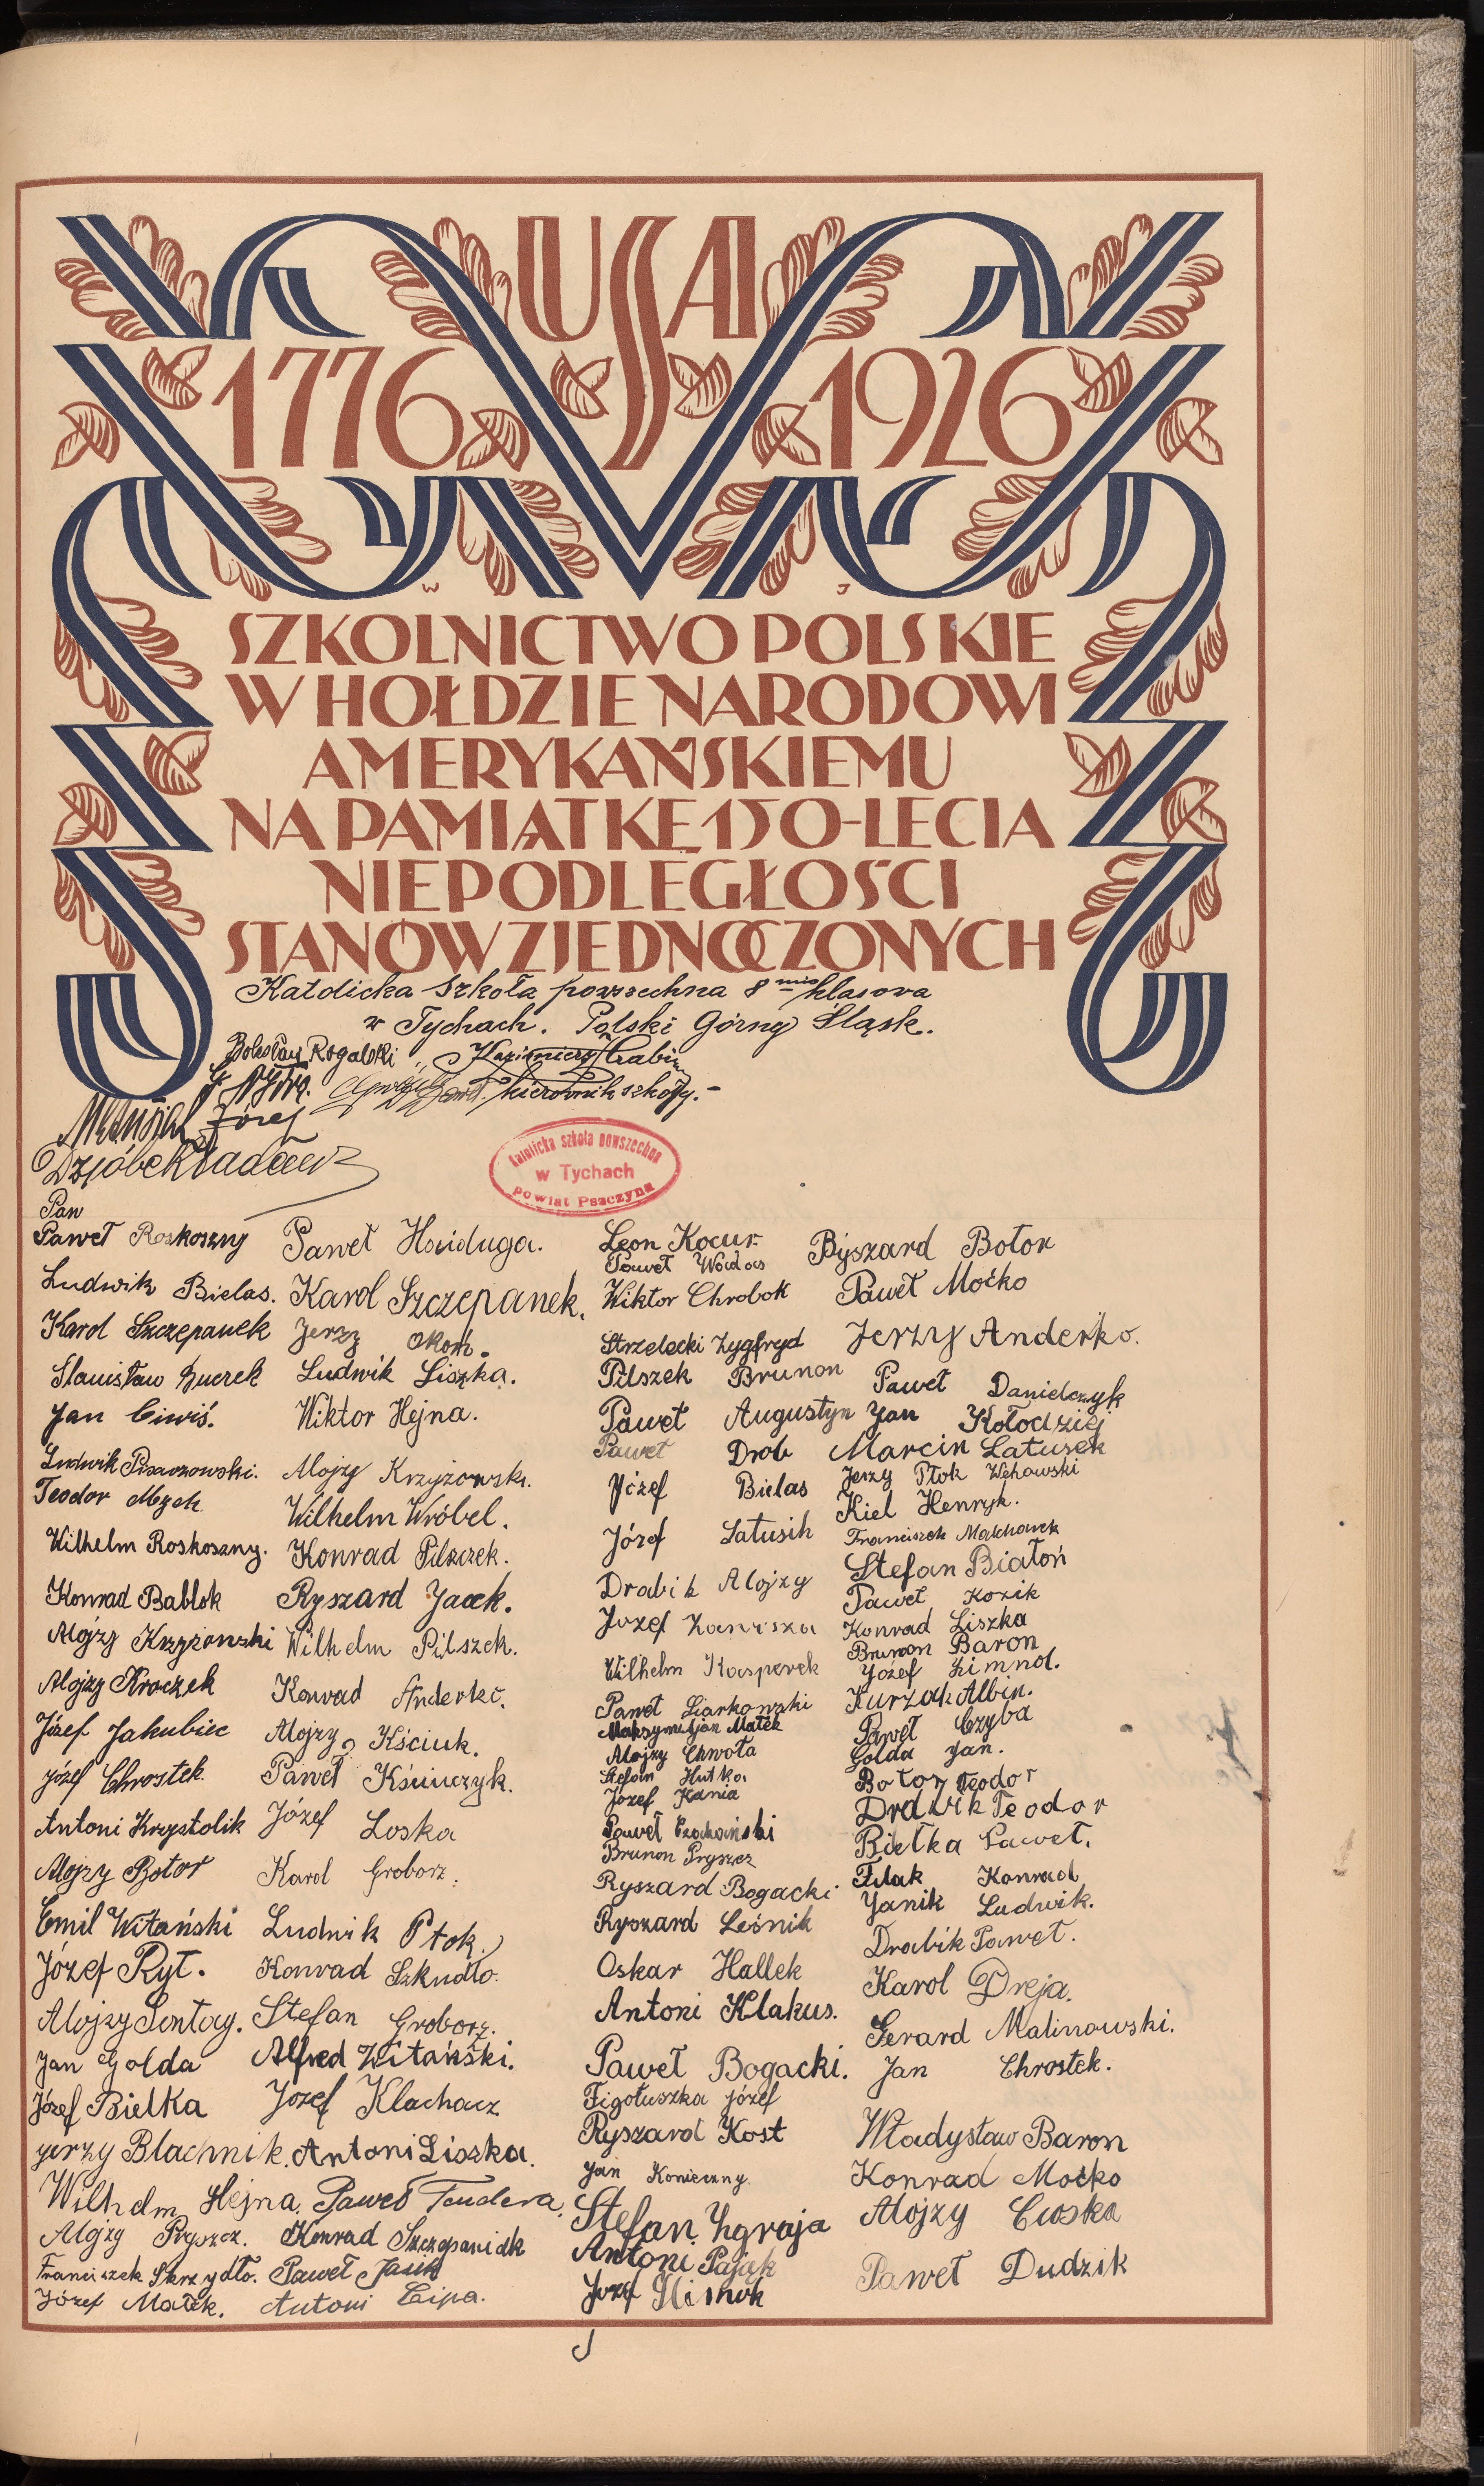 USA
1776 1926
W J
SZKOLNICTWO POLSKIE
W HOŁDZIE NARODOWI
AMERYKAŃSKIEMU
NA PAMIĄTKĘ 150-LECIA
NIEPODLEGŁOŚCI
STANÓW ZJEDNOCZONYCH
Katolicka Szkoła powszechna 8 mio klasowa
w Tychach. Polski Górny Śląsk.
Bolesław Rogalski
Kazimierz
kierownik szkoły.-
Matusiak Józef
Dziobek Tadeusz
Katolicka szkoła powszechna
w Tychach
powiat Pszczyna
Paw
Paweł Roskoszny
Ludwik Bielas.
Karol Szczepanek
Stanisław Burek
Jan Ciwiś.
Ludwik Pisarzowski.
Teodor Mzyk
Wilhelm Roskoszny.
Konrad Bablok
Alojzy Krzyżowski
Alojzy Kroczek
Józef Jakubiec
Józef Chrostek.
Antoni Krystolik
Alojzy Botor
Emil Witański
Józef Ryt.
Alojzy Sontag.
Jan Golda
Józef Bielka
Jerzy Blachnik.
Wilhelm Hejna
Alojzy Pryszcz.
Franciszek Skrzydło.
Józef Małek.
Paweł Hajduga.
Karol Szczepanek.
Jerzy Okoń.
Ludwik Liszka.
Wiktor Hejna.
Alojzy Krzyżowski.
Wilhelm Wróbel.
Konrad Pilszczek.
Ryszard Jacek.
Wilhelm Pilszek.
Konrad Anderko.
Alojzy Kściuk.
Paweł Kściuczyk.
Józef Loska
Karol Groborz.
Ludwik Ptok.
Konrad Szkudło.
Stefan Groborz.
Alfred Witański.
Józef Klachacz
Antoni Liszka.
Paweł Tendera.
Konrad Szczepaniak
Paweł Jasik
Antoni Lipa.
Leon Kocur
Paweł Wodas
Wiktor Chrobok
Strzelecki Zygfryd
Pilszek Brunon
Paweł Augustyn
Paweł Drob
Józef Bielas
Józef Latusik
Drabik Alojzy
Józef Kaniszka
Wilhelm Kasperek
Paweł Siarkowski
Maksymiljan Małek
Alojzy Chwoła
Stefan Hutka
Józef Kania
Paweł
Brunon Pryszcz
Ryszard Bogacki
Ryszard Leśnik
Oskar Hallek
Antoni Klakus.
Paweł Bogacki.
Figołuszka Józef
Ryszard Kost
Jan Konieczny
Stefan Zgraja
Antoni Pająk
Józef Klimok
J
Ryszard Botor
Paweł Moćko
Jerzy Anderko.
Paweł Danielczyk
Jan Kołodziej
Marcin Latusek
Jerzy Ptok
Kiel Henryk.
Franciszek Malcharek
Stefan Białoń
Paweł Kozik
Konrad Liszka
Brunon Baron
Józef Zimnol.
Kurzak Albin.
Paweł Czyba
Golda Jan.
Botor Teodor
Drabik Teodor
Bielka Paweł.
Filak Konrad
Janik Ludwik.
Drabik Paweł.
Karol Dreja.
Gerard Malinowski.
Jan Chrostek.
Władysław Baron
Konrad Moćko
Alojzy Cioska
Paweł Dudzik